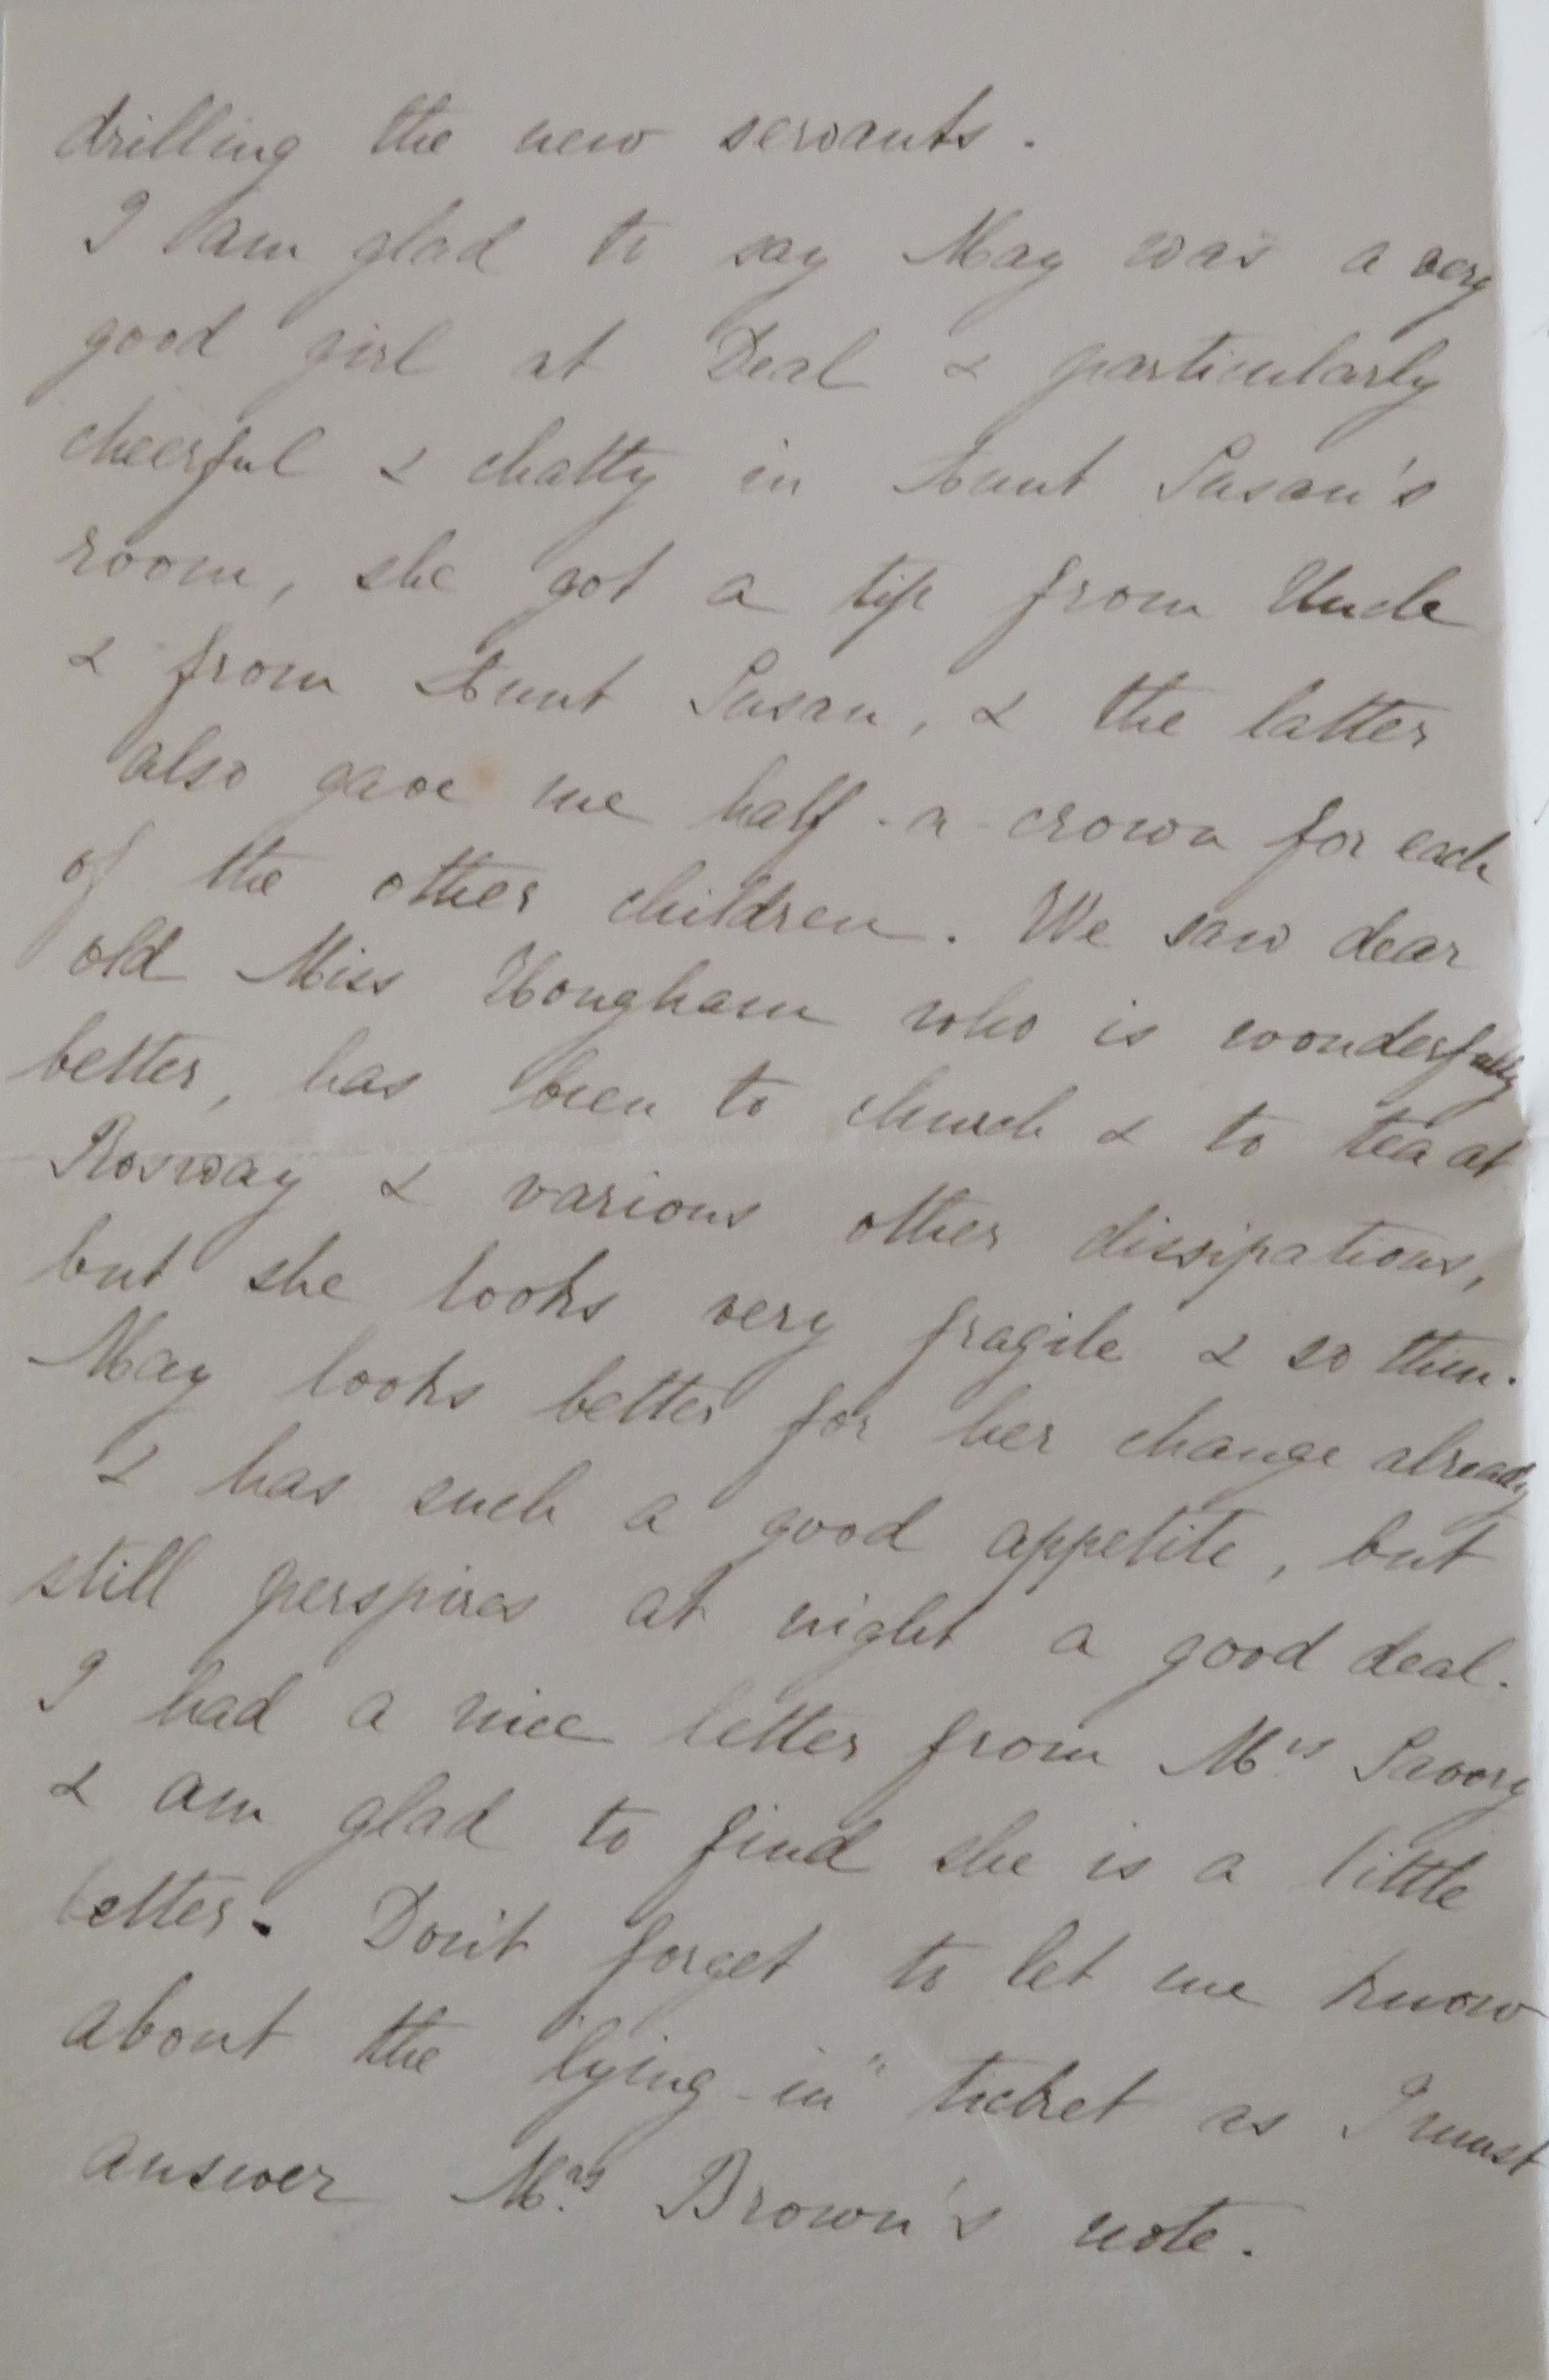 drilling the new servants.
I am glad to say May was a very
good girl at Deal & particularly
cheerful & chatty in Aunt Susan's
room, she got a tip from Uncle
& from Aunt Susan, & the latter
also gave me half-a-crown for each
of the other children. We saw dear
old Miss Hougham who is wonderfully
better, has been to church & to tea at
Roxway & various other dissipations,
but she looks very fragile & so thin.
May looks better for her change already
& has such a good appetite, but
still perspires at night a good deal.
I had a nice letter from Mrs Savory
& am glad to find she is a little
better. Don't forget to let me know
about the "lying-in" ticket as I must
answer Mrs Brown's note.